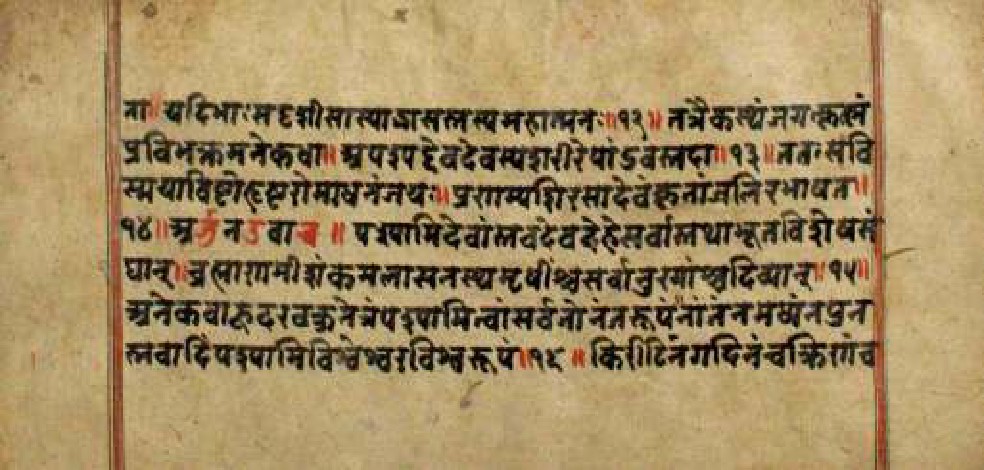 ता॥ यदिभाःसदृशीसास्याद्भासस्तस्यमहात्मनः॥१२॥ तत्रैकस्थंजगत्कृत्स्नं
प्रविभक्तमनेकधा॥ अपश्यद्देवदेवस्यशरीरेपांडवस्तदा॥१३॥ततःसवि
स्मयाविष्टोहृष्टरोमाधनंजयः॥ प्रणम्यशिरसादेवंकृतांजलिरभाषत॥
१४॥ अर्जुनउवाच॥ पश्यामिदेवांस्तवदेवदेहेसर्वांस्तथाभूतविशेषसं
घान्॥ब्रह्माणमीशंकमलासनस्थमृषींश्चसर्वानुरगांश्चदिव्यान्॥१५॥
अनेकबाहूदरवक्त्रनेत्रंपश्यामित्वांसर्वतोनंतरूपंनांतंनमध्यंनपुन
स्तवादिंपश्यामिविश्वेश्वरविश्वरूपं॥१६॥ किरीटिनंगदिनंचक्रिणंच